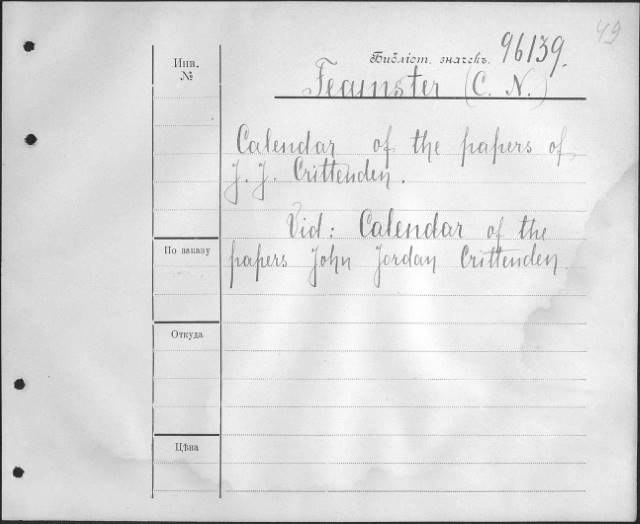 49
Библіот. значекъ. 96139.
Инв. №
Feamster (C. N.)
Calendar of the papers of
J. J. Crittenden.
Vid: Calendar of the
papers John Jordan Crittenden
По заказу
Откуда
Цѣна